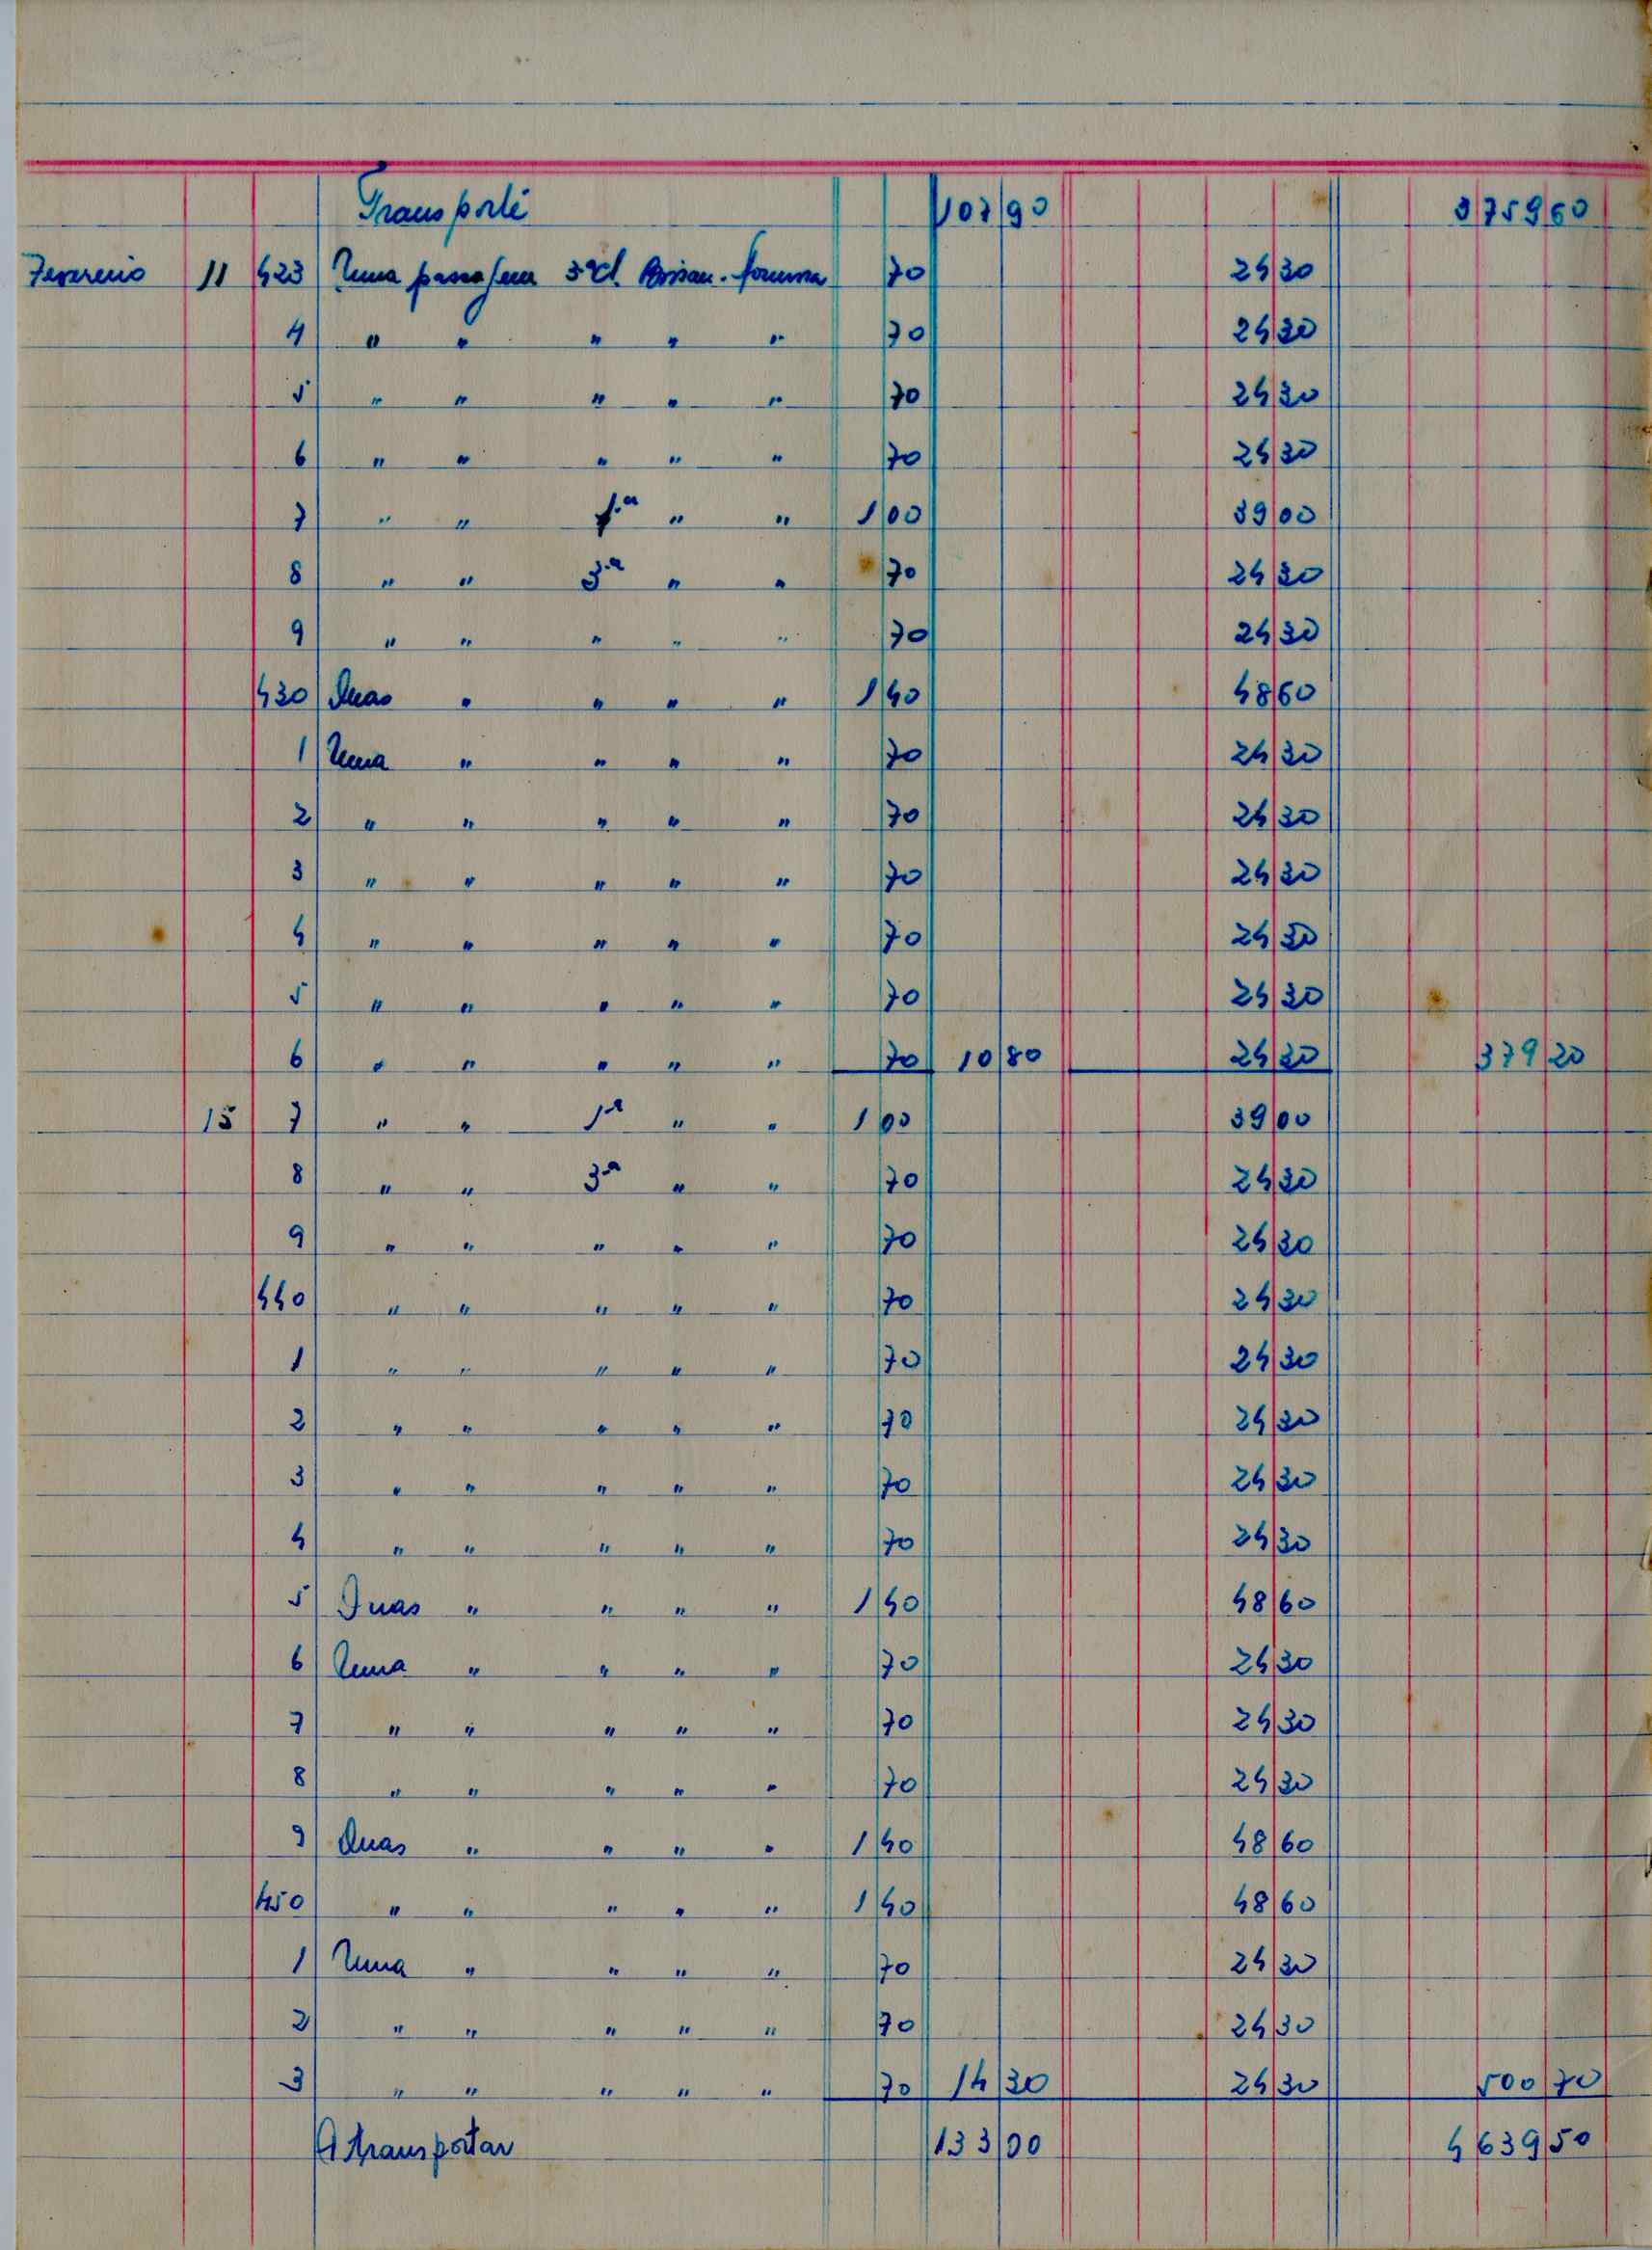 Transporte 107 90 3759 60
Fevereiro 11 423 Uma passagem 3ª cl. Bissau-formosa 70 24 30
4 " " " " " 70 24 30
5 " " " " " 70 24 30
6 " " " " " 70 24 30
7 " " 1.ª " " 1 00 39 00
8 " " 3ª " " 70 24 30
9 " " " " " 70 24 30
430 Duas " " " " 1 40 48 60
1 Uma " " " " 70 24 30
2 " " " " " 70 24 30
3 " " " " " 70 24 30
4 " " " " " 70 24 30
5 " " " " " 70 24 30
6 " " " " " 70 10 80 24 30 379 20
15 7 " " 1ª " " 1 00 39 00
8 " " 3ª " " 70 24 30
9 " " " " " 70 24 30
440 " " " " " 70 24 30
1 " " " " " 70 24 30
2 " " " " " 70 24 30
3 " " " " " 70 24 30
4 " " " " " 70 24 30
5 Duas " " " " 1 40 48 60
6 Uma " " " " 70 24 30
7 " " " " " 70 24 30
8 " " " " " 70 24 30
9 Duas " " " " 1 40 48 60
450 " " " " " 1 40 48 60
1 Uma " " " " 70 24 30
2 " " " " " 70 24 30
3 " " " " " 70 14 30 24 30 500 70
A transportar 133 00 4639 50